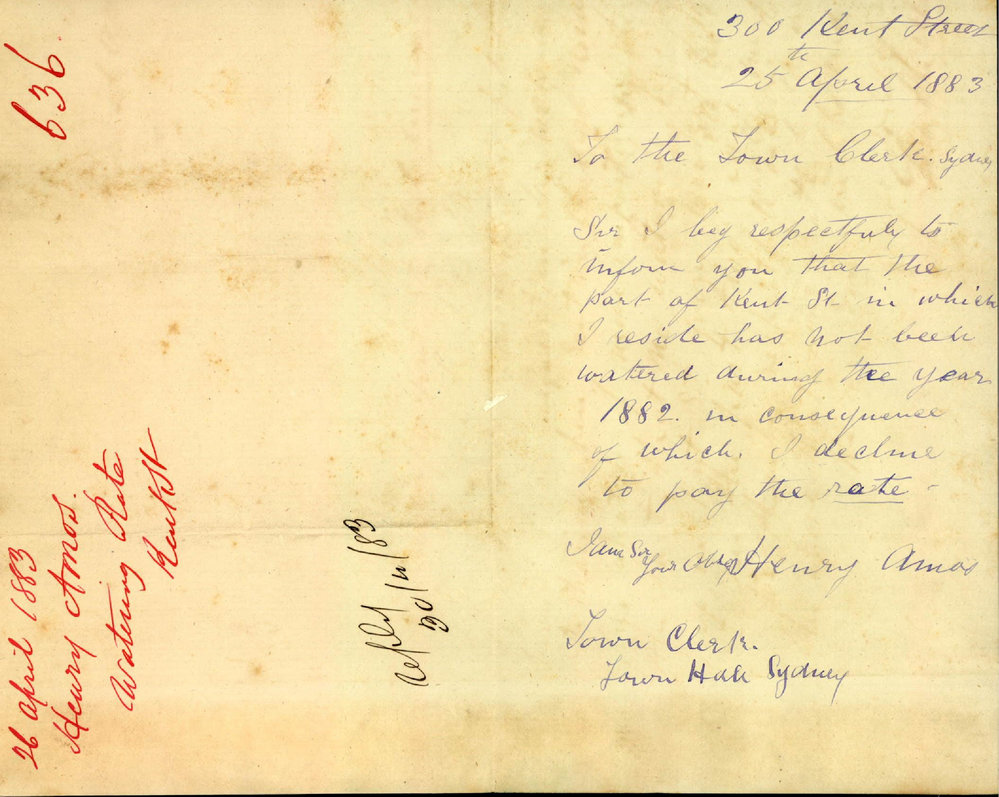 300 Kent Street
25th April 1883
To the Town Clerk. Sydney
Sir I beg respectfuly to
inform you that the
part of Kent St in which
I reside has not been
watered during the year
1882. in consequence
of which. I decline
to pay the rate -
I am Sir
Your Obt
Henry Amos
Town Clerk.
Town Hall Sydney
636
26 April 1883
Henry Amos.
Watering Rate
Kent St
Repld
30/iv/83